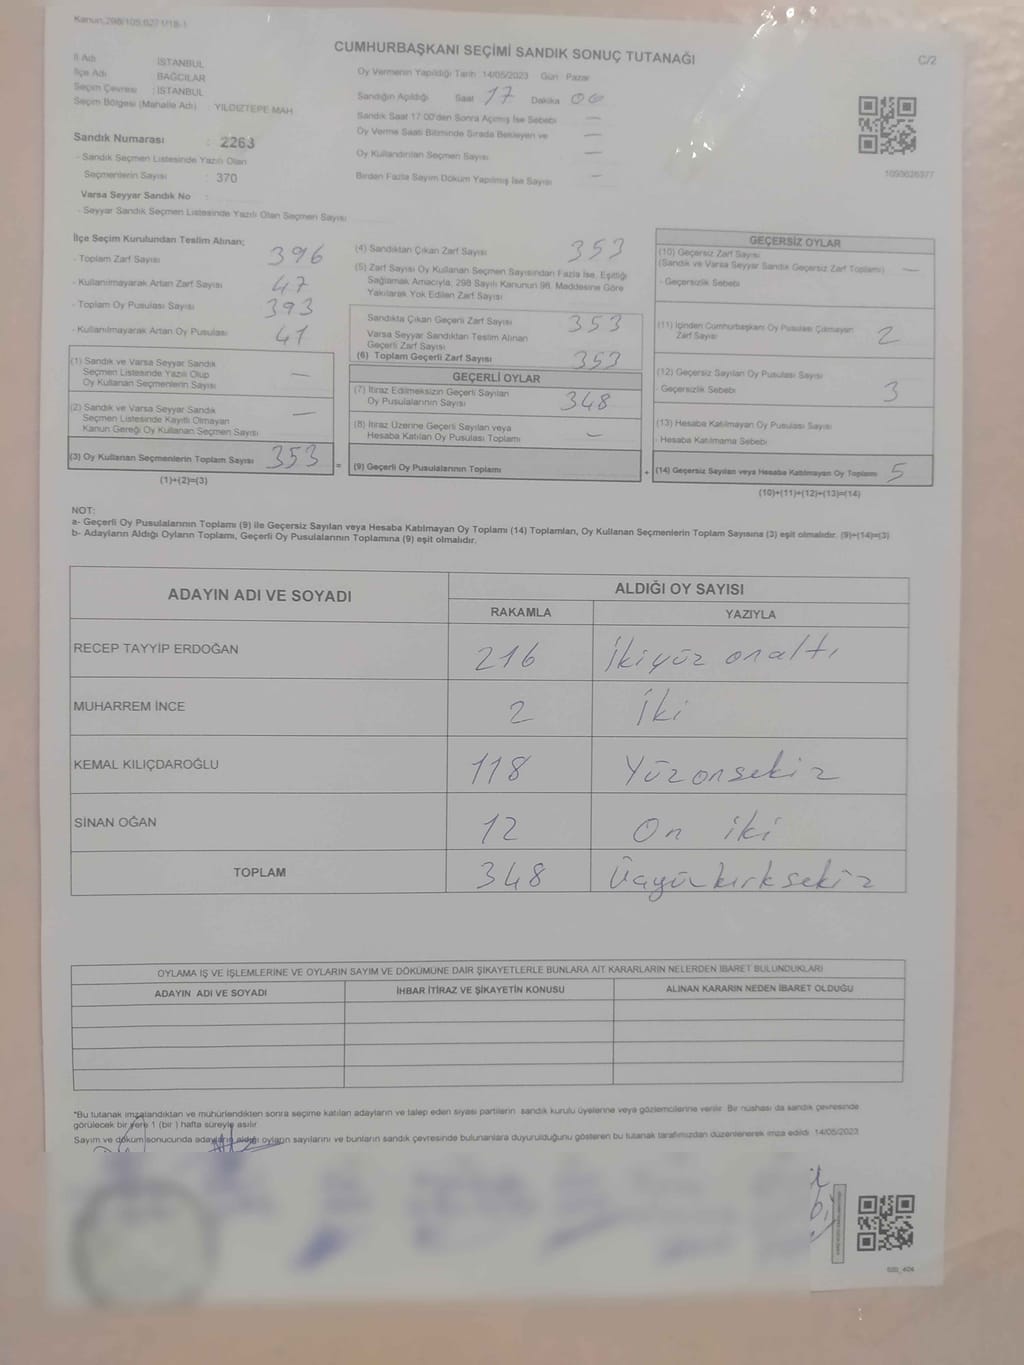 Kanun,298/105,6271/18-1
CUMHURBAŞKANI SEÇİMİ SANDIK SONUÇ TUTANAĞI
C/2
İl Adı : İSTANBUL
İlçe Adı : BAĞCILAR
Seçim Çevresi : İSTANBUL
Seçim Bölgesi (Mahalle Adı) : YILDIZTEPE MAH.
Oy Vermenin Yapıldığı Tarih :14/05/2023 Gün : Pazar
Sandığın Açıldığı Saat 17 Dakika 00
Sandık Saat 17:00'den Sonra Açılmış İse Sebebi —
Oy Verme Saati Bitiminde Sırada Bekleyen ve —
Oy Kullandırılan Seçmen Sayısı —
Birden Fazla Sayım Döküm Yapılmış İse Sayısı —
Sandık Numarası : 2263
- Sandık Seçmen Listesinde Yazılı Olan
Seçmenlerin Sayısı : 370
Varsa Seyyar Sandık No :
- Seyyar Sandık Seçmen Listesinde Yazılı Olan Seçmen Sayısı
İlçe Seçim Kurulundan Teslim Alınan;
- Toplam Zarf Sayısı 396
- Kullanılmayarak Artan Zarf Sayısı 47
- Toplam Oy Pusulası Sayısı 393
- Kullanılmayarak Artan Oy Pusulası 41
(1) Sandık ve Varsa Seyyar Sandık
Seçmen Listesinde Yazılı Olup
Oy Kullanan Seçmenlerin Sayısı —
(2) Sandık ve Varsa Seyyar Sandık
Seçmen Listesinde Kayıtlı Olmayan
Kanun Gereği Oy Kullanan Seçmen Sayısı —
(3) Oy Kullanan Seçmenlerin Toplam Sayısı 353
(1)+(2)=(3)
=
(4) Sandıktan Çıkan Zarf Sayısı 353
(5) Zarf Sayısı Oy Kullanan Seçmen Sayısından Fazla İse, Eşitliği
Sağlamak Amacıyla; 298 Sayılı Kanunun 98. Maddesine Göre
Yakılarak Yok Edilen Zarf Sayısı
Sandıkta Çıkan Geçerli Zarf Sayısı 353
Varsa Seyyar Sandıktan Teslim Alınan
Geçerli Zarf Sayısı
(6) Toplam Geçerli Zarf Sayısı 353
GEÇERLİ OYLAR
(7) İtiraz Edilmeksizin Geçerli Sayılan
Oy Pusulalarının Sayısı 348
(8) İtiraz Üzerine Geçerli Sayılan veya
Hesaba Katılan Oy Pusulası Toplamı —
(9) Geçerli Oy Pusulalarının Toplamı
+
1093626377
GEÇERSİZ OYLAR
(10) Geçersiz Zarf Sayısı
(Sandık ve Varsa Seyyar Sandık Geçersiz Zarf Toplamı) —
- Geçersizlik Sebebi
(11) İçinden Cumhurbaşkanı Oy Pusulası Çıkmayan
Zarf Sayısı 2
(12) Geçersiz Sayılan Oy Pusulası Sayısı
- Geçersizlik Sebebi 3
(13) Hesaba Katılmayan Oy Pusulası Sayısı
- Hesaba Katılmama Sebebi
(14) Geçersiz Sayılan veya Hesaba Katılmayan Oy Toplamı 5
(10)+(11)+(12)+(13)=(14)
NOT:
a- Geçerli Oy Pusulalarının Toplamı (9) ile Geçersiz Sayılan veya Hesaba Katılmayan Oy Toplamı (14) Toplamları, Oy Kullanan Seçmenlerin Toplam Sayısına (3) eşit olmalıdır. (9)+(14)=(3)
b- Adayların Aldığı Oyların Toplamı, Geçerli Oy Pusulalarının Toplamına (9) eşit olmalıdır.
ADAYIN ADI VE SOYADI
ALDIĞI OY SAYISI
RAKAMLA YAZIYLA
RECEP TAYYİP ERDOĞAN 216 İkiyüz onaltı
MUHARREM İNCE 2 İki
KEMAL KILIÇDAROĞLU 118 Yüzonsekiz
SİNAN OĞAN 12 On iki
TOPLAM 348 Üçyüzkırksekiz
OYLAMA İŞ VE İŞLEMLERİNE VE OYLARIN SAYIM VE DÖKÜMÜNE DAİR ŞİKAYETLERLE BUNLARA AİT KARARLARIN NELERDEN İBARET BULUNDUKLARI
ADAYIN ADI VE SOYADI
İHBAR İTİRAZ VE ŞİKAYETİN KONUSU
ALINAN KARARIN NEDEN İBARET OLDUĞU
*Bu tutanak imzalandıktan ve mühürlendikten sonra seçime katılan adayların ve talep eden siyasi partilerin sandık kurulu üyelerine veya gözlemcilerine verilir. Bir nüshası da sandık çevresinde
görülecek bir yere 1 (bir ) hafta süreyle asılır.
Sayım ve döküm sonucunda adayların aldığı oyların sayılarını ve bunların sandık çevresinde bulunanlara duyurulduğunu gösteren bu tutanak tarafımızdan düzenlenerek imza edildi. 14/05/2023